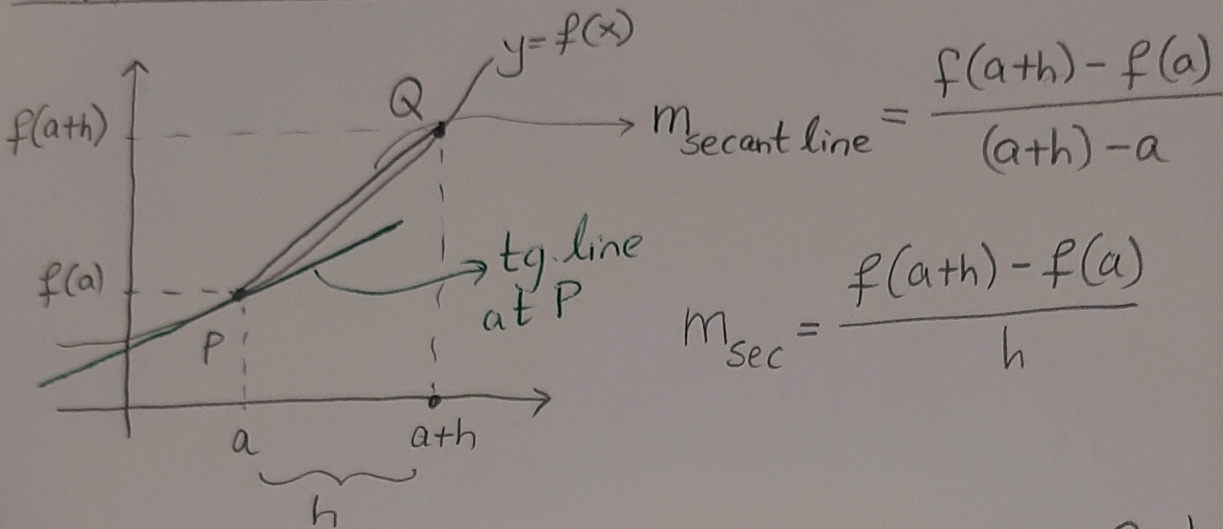 y=f(x)
Q
f(a+h)
m secant line = f(a+h) - f(a) / (a+h) - a
f(a)
tg. line
at P
P
m sec = f(a+h) - f(a) / h
a
a+h
h